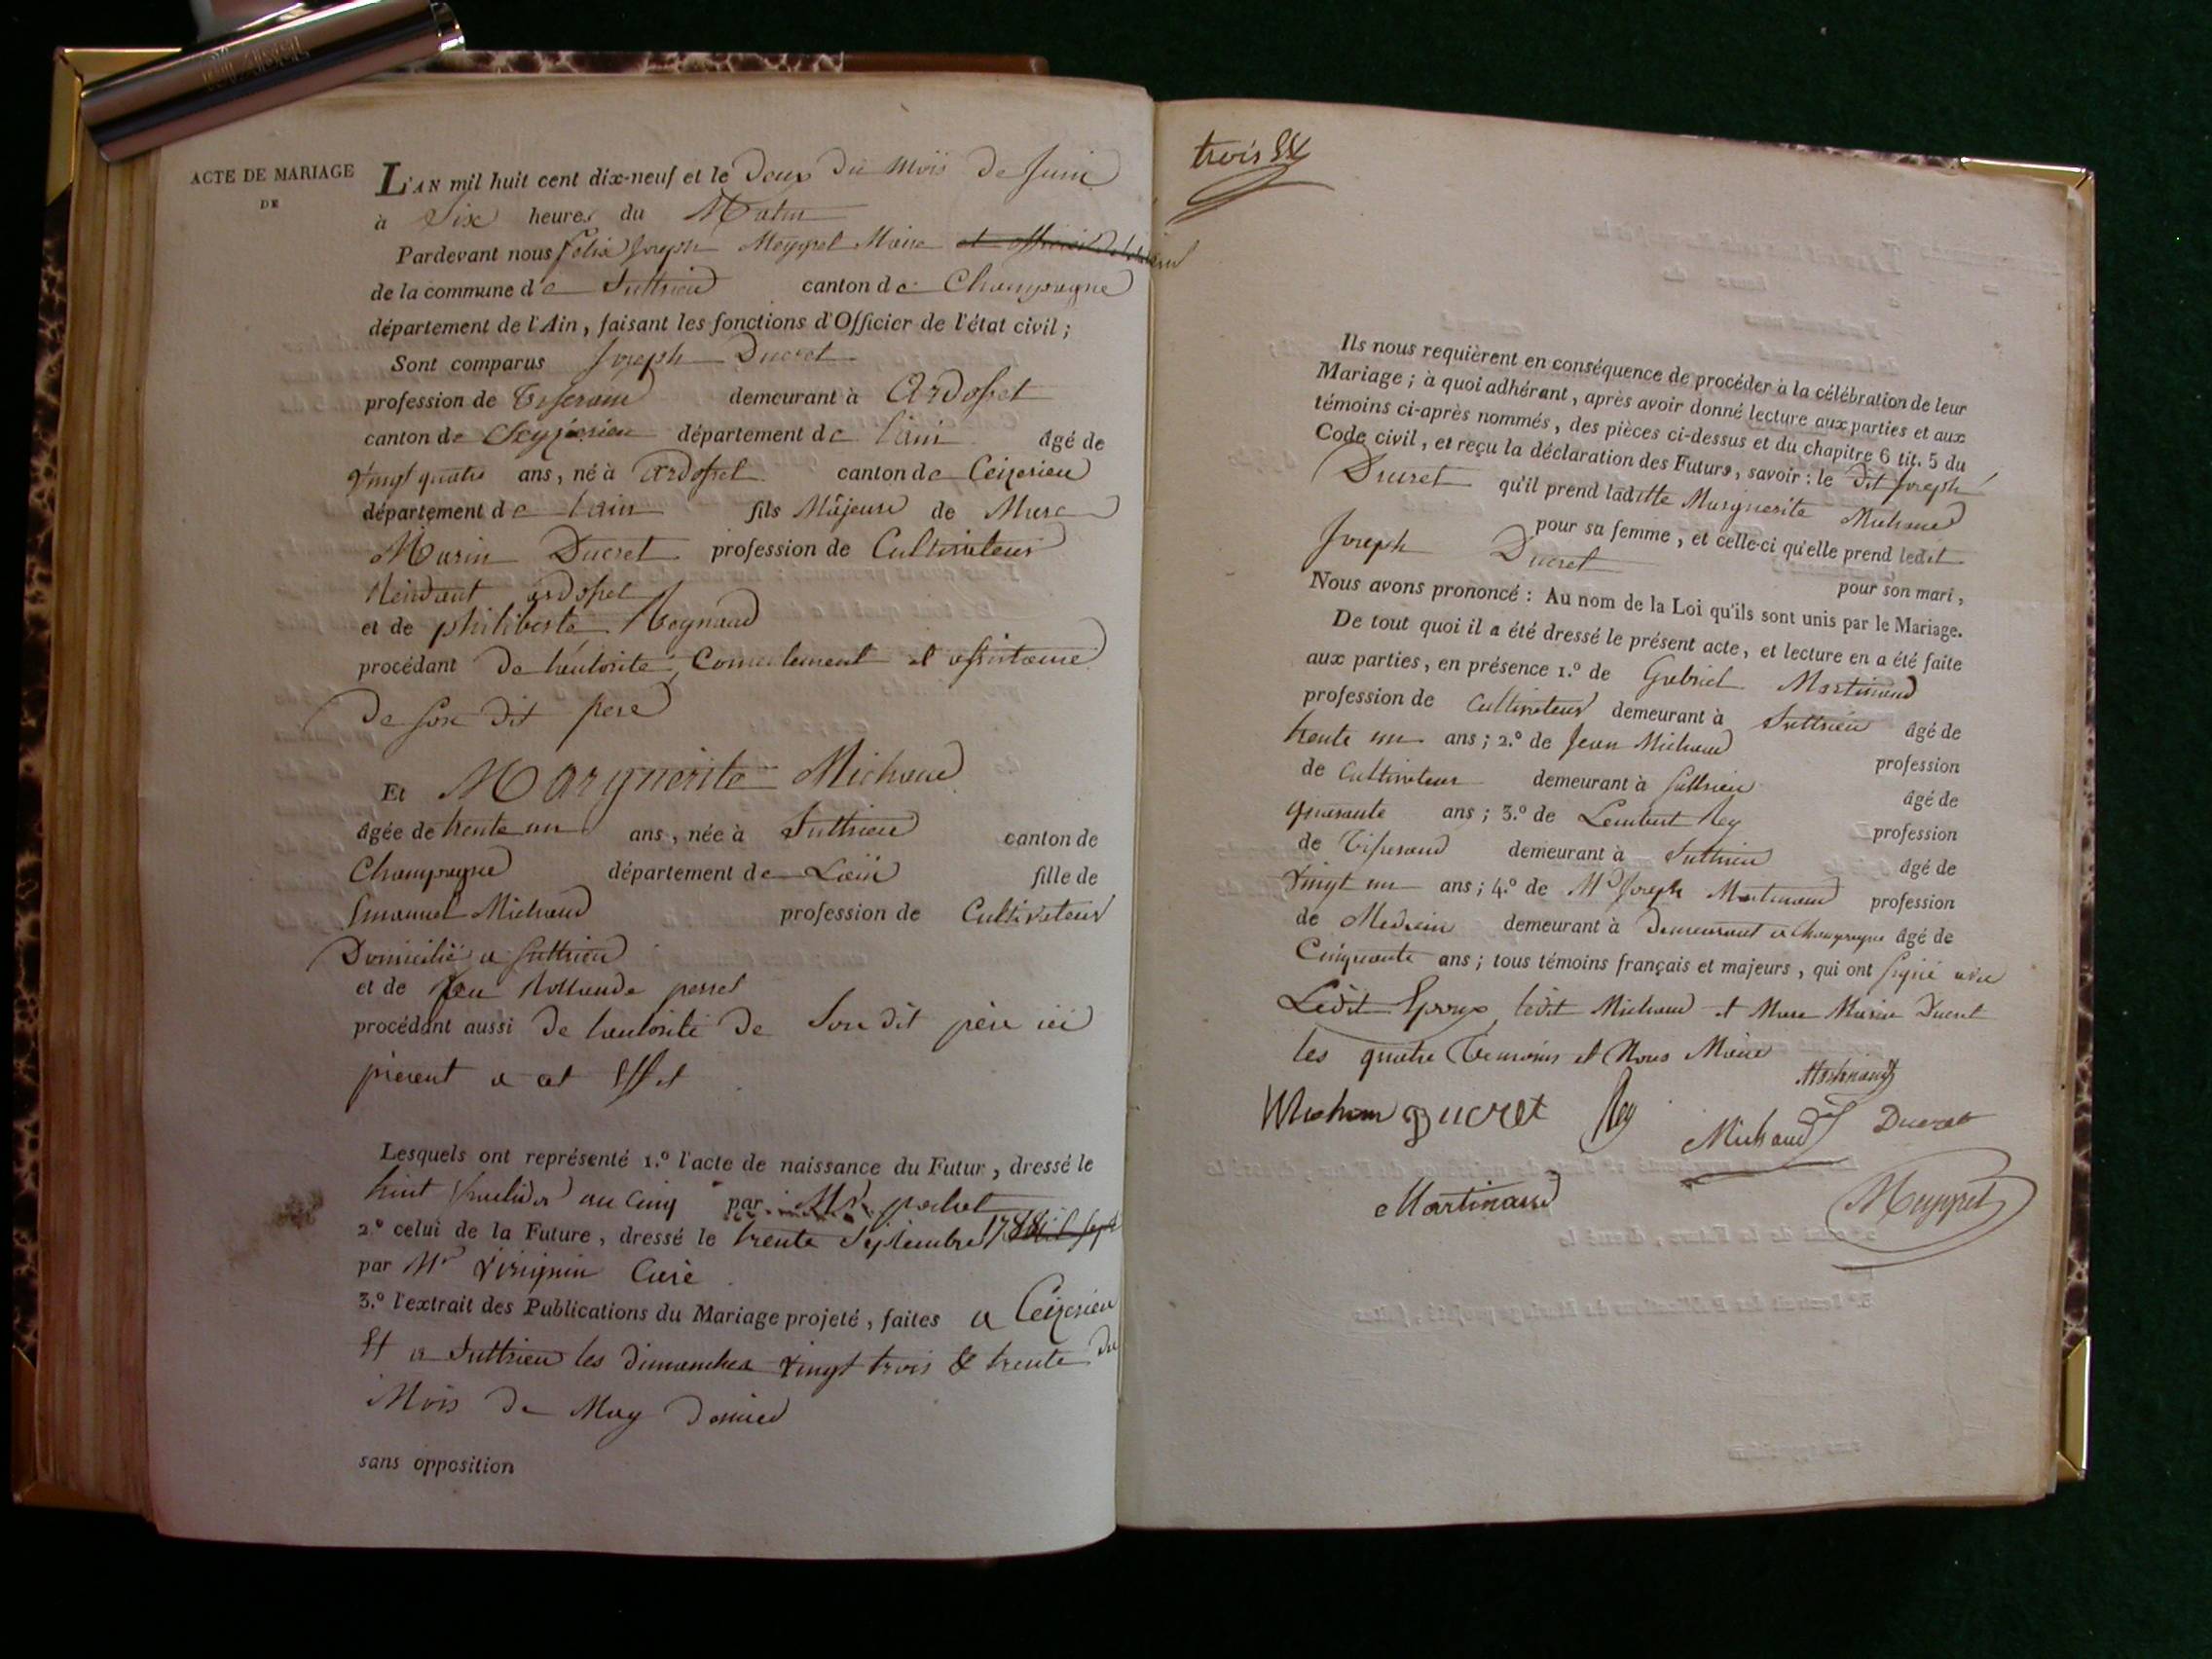 ACTE DE MARIAGE
DE
L'AN mil huit cent dix-neuf et le Deux du Mois de Juin
à Six heures du Matin
Pardevant nous félix Joseph Meyppel Maire
de la commune de Suttrieu canton de Champagne
département de l'Ain, faisant les fonctions d'Officier de l'état civil;
Sont comparus Joseph Ducret
profession de Tiserand demeurant à Ardosset
canton de Ceyserieu département de l'ain âgé de
Vingt quatre ans, né à Ardosset canton de Ceizerieu
département de l'ain fils Majeur de Marc
Marin Ducret profession de Cultivateur
Ardosset
et de philiberte Reynaud
procédant de l'autorité, Consentement et assistance
De son dit pere
Et Marguerite Michaud
âgée de trente un ans, née à Suttrieu canton de
Champagne département de Lain fille de
Emanuel Michaud profession de Cultivateur
Domicilié a Suttrieu
et de feu Rollande perret
procédant aussi de l'autorité de Son dit père ici
présent a cet Effet
Lesquels ont représenté 1.º l'acte de naissance du Futur, dressé le
huit fructidor an cinq par Mr. pochet
2.º celui de la Future, dressé le trente Septembre 1788
par Mr Curé
3.º l'extrait des Publications du Mariage projeté, faites a Ceizerieu
Et a Suttrieu les dimanches Vingt trois & trente du
Mois de May dernier
sans opposition
trois
Ils nous requièrent en conséquence de procéder à la célébration de leur
Mariage; à quoi adhérant, après avoir donné lecture aux parties et aux
témoins ci-après nommés, des pièces ci-dessus et du chapitre 6 tit. 5 du
Code civil, et reçu la déclaration des Futurs, savoir: le dit Joseph
Ducret qu'il prend laditte Marguerite Michaud
pour sa femme, et celle-ci qu'elle prend ledit
Joseph Ducret pour son mari,
Nous avons prononcé: Au nom de la Loi qu'ils sont unis par le Mariage.
De tout quoi il a été dressé le présent acte, et lecture en a été faite
aux parties, en présence 1.º de Gabriel Martinand
profession de Cultivateur demeurant à Suttrieu âgé de
trente un ans; 2.º de Jean Michaud profession
de Cultivateur demeurant à Suttrieu âgé de
quarante ans; 3.º de Lambert Rey profession
de Tiserand demeurant à Suttrieu âgé de
Vingt un ans; 4.º de Mr Joseph Martinand profession
de Medecin demeurant à Demeurant a Champagne âgé de
Cinquante ans; tous témoins français et majeurs, qui ont signé avec
Ledit Epoux, ledit Michaud et Marc Marin Ducret
les quatre Temoins et Nous Maire
Martinand
Michaud Ducret Rey Michaud Ducret
Martinand Meyppel